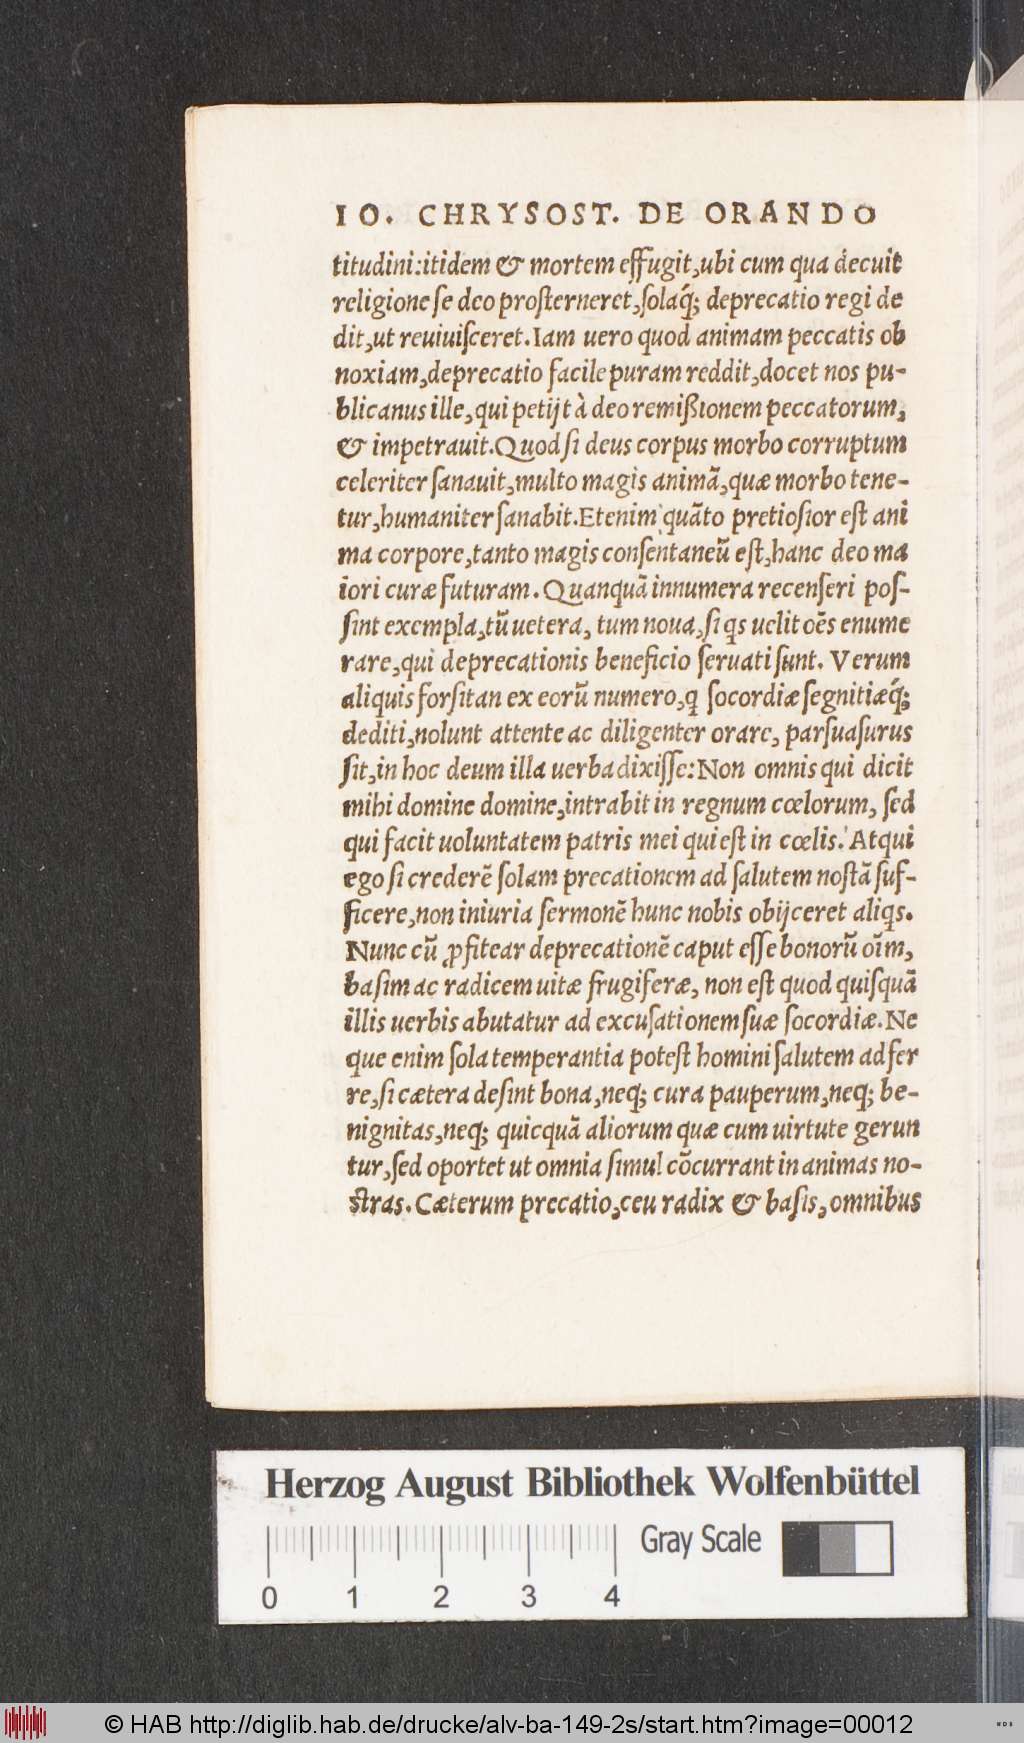 IO. CHRYSOST. DE ORANDO
titudini:itidem & mortem effugit,ubi cum qua decuit
religione se deo prosterneret,solaq́; deprecatio regi de
dit,ut reuiuisceret.Iam uero quod animam peccatis ob
noxiam,deprecatio facile puram reddit,docet nos pu-
blicanus ille,qui petijt à deo remißionem peccatorum,
& impetrauit.Quod si deus corpus morbo corruptum
celeriter sanauit,multo magis animã,quæ morbo tene-
tur,humaniter sanabit.Etenim quãto pretiosior est ani
ma corpore,tanto magis consentaneũ est,hanc deo ma
iori curæ futuram. Quanquã innumera recenseri pos-
sint exempla,tũ uetera, tum noua,si qs uelit oẽs enume
rare,qui deprecationis beneficio seruati sunt. Verum
aliquis forsitan ex eorũ numero,q socordiæ segnitiæq́;
dediti,nolunt attente ac diligenter orare, parsuasurus
sit,in hoc deum illa uerba dixisse:Non omnis qui dicit
mihi domine domine,intrabit in regnum cœlorum, sed
qui facit uoluntatem patris mei qui est in cœlis. Atqui
ego si crederẽ solam precationem ad salutem nostã suf-
ficere,non iniuria sermonẽ hunc nobis obijceret aliqs.
Nunc cũ ꝓfitear deprecationẽ caput esse bonorũ oĩm,
basim ac radicem uitæ frugiferæ, non est quod quisquã
illis uerbis abutatur ad excusationem suæ socordiæ.Ne
que enim sola temperantia potest homini salutem adfer
re,si cætera desint bona,neq; cura pauperum,neq; be-
nignitas,neq; quicquã aliorum quæ cum uirtute gerun
tur,sed oportet ut omnia simul cõcurrant in animas no-
stras. Cæterum precatio,ceu radix & basis,omnibus
Herzog August Bibliothek Wolfenbüttel
Gray Scale
0 1 2 3 4
© HAB http://diglib.hab.de/drucke/alv-ba-149-2s/start.htm?image=00012